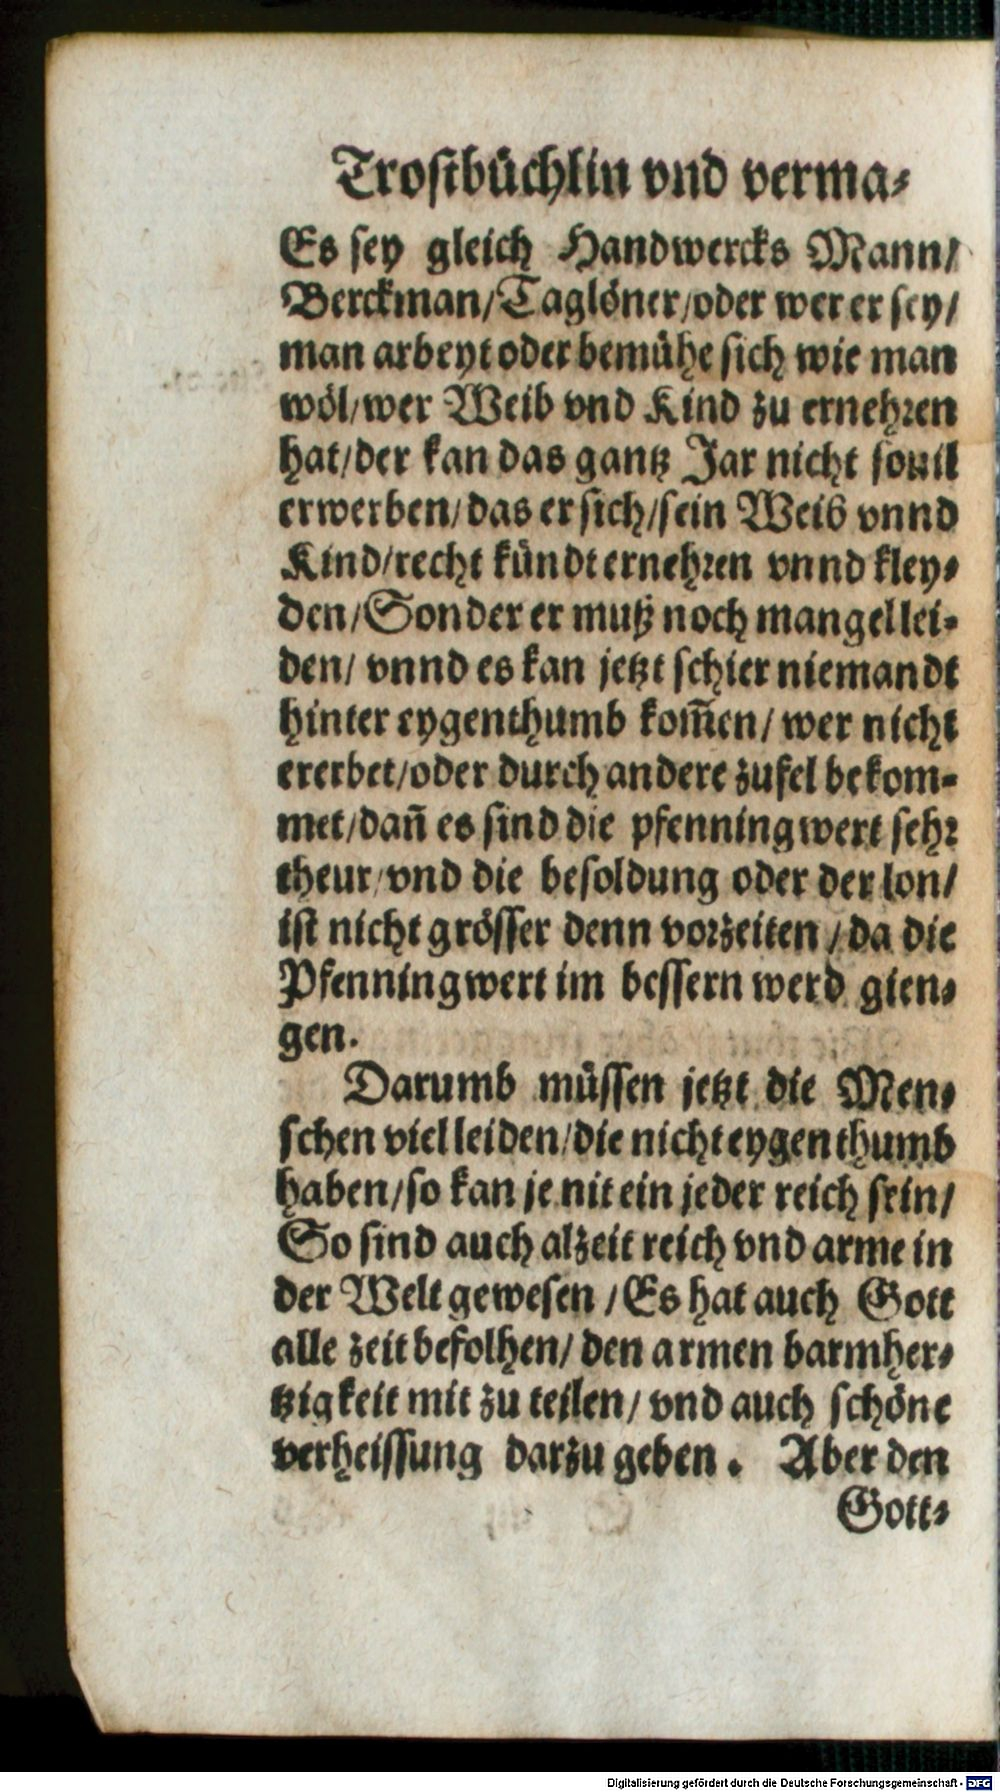 Trostbüchlin vnd verma⸗
Es sey gleich Handwercks Mann/
Berckman/Taglöner/oder wer er sey/
man arbeyt oder bemühe sich wie man
wöl/wer Weib vnd Kind zu ernehren
hat/der kan das gantz Jar nicht souil
erwerben/das er sich/sein Weib vnnd
Kind/recht kündt ernehren vnnd kley⸗
den/Sonder er mutz noch mangel lei⸗
den/ vnnd es kan jetzt schier niemandt
hinter eygenthumb kom̃en/ wer nicht
ererbet/oder durch andere zufel bekom⸗
met/dañ es sind die pfenningwert sehr
theur/vnd die besoldung oder der lon/
ist nicht grösser denn vorzeiten/da die
Pfenningwert im bessern werd gien⸗
gen.
Darumb müssen jetzt die Men⸗
schen viel leiden/die nicht eygenthumb
haben/so kan je nit ein jeder reich sein/
So sind auch alzeit reich vnd arme in
der Welt gewesen/Es hat auch Gott
alle zeit befolhen/ den armen barmher⸗
tzigkeit mit zu teilen/ vnd auch schöne
verheissung darzu geben. Aber den
Gott⸗
Digitalisierung gefördert durch die Deutsche Forschungsgemeinschaft - DFG